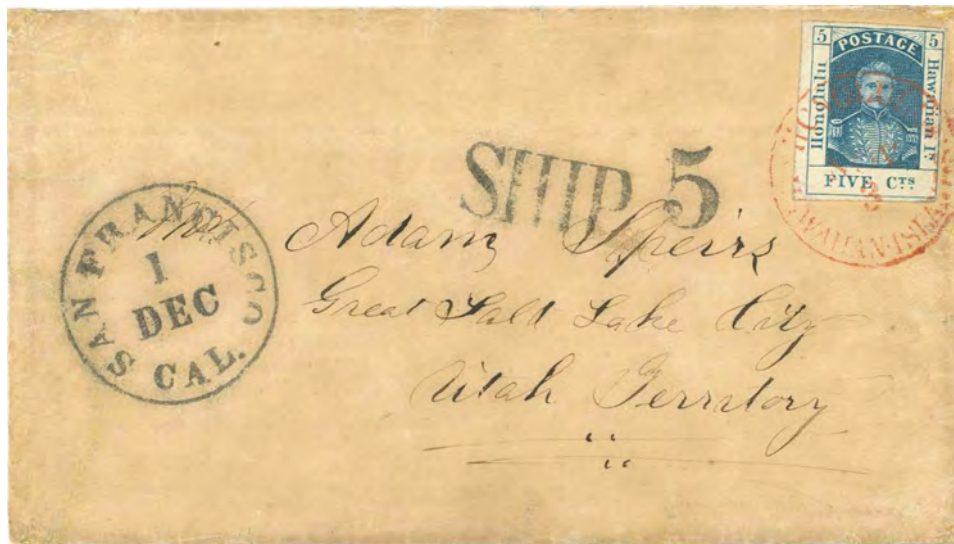 5 POSTAGE 5
Honolulu
Hawaiian Is.
FIVE Cts
HAWAIIAN-ISLANDS
SHIP 5
SAN FRANCISCO
1
DEC
CAL.
Adam Speirs
Great Salt Lake City
Utah Territory